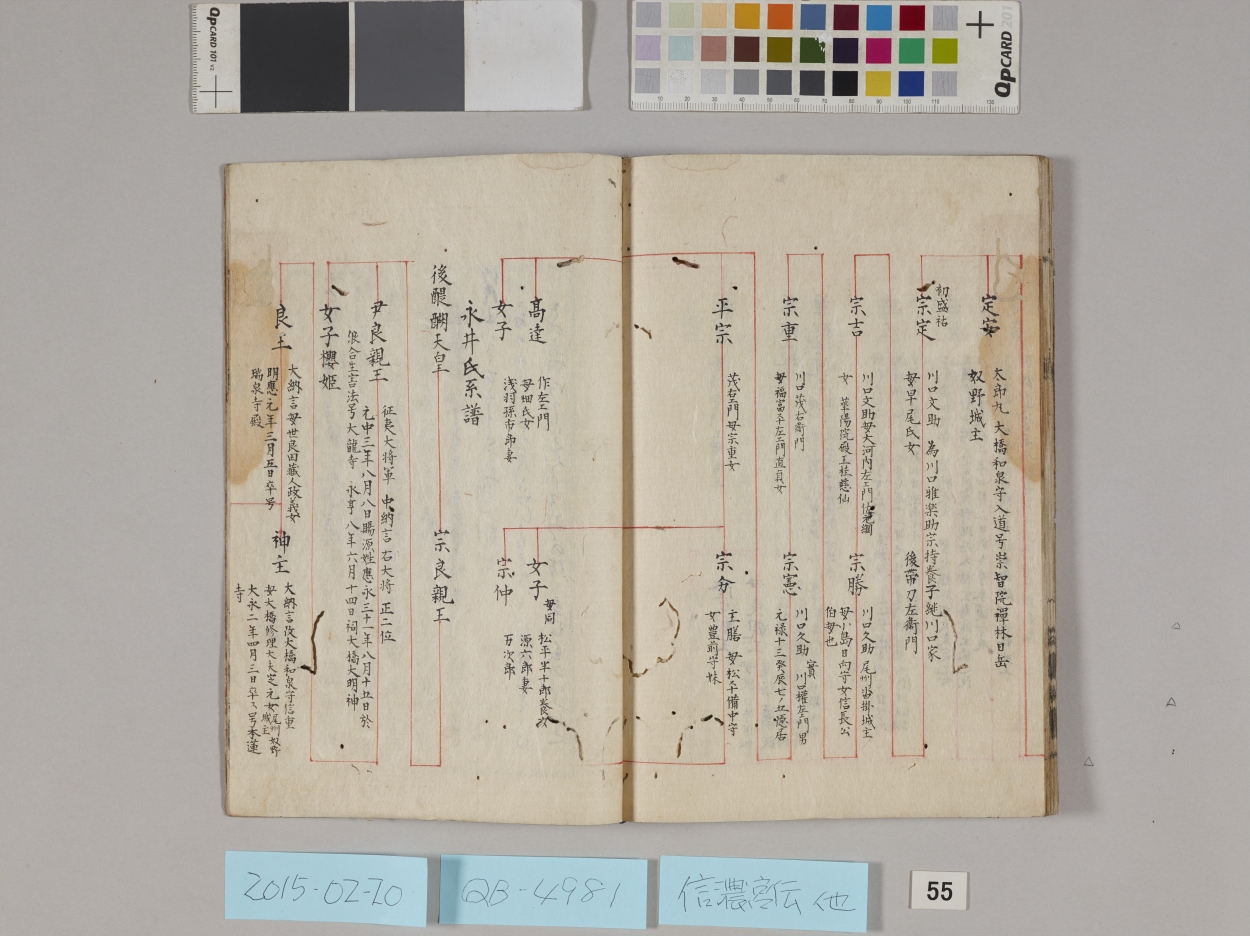 QPCARD 101 v3
QPCARD 201
定安
太郎九 大橋和泉守入道号崇智院禅林日岳
奴野城主
初盛祐
宗定
川口文助 為川口雅楽助宗持養子継川口家
母早尾氏女
後帯刀左衛門
宗吉
川口文助母大河内左エ門佐元綱
女 華陽院殿玉桂慈仙
宗勝
川口久助 尾州沓掛城主
母小島日向守女信長公
伯母也
宗重
川口茂右衛門
母福富平左エ門直貞女
宗憲
川口久助 實川口權左エ門男
平宗
茂右エ門母宗重女
宗分
主膳 母松平備中守
女 豊前守妹
高達
作左エ門
母細氏女
女子
浅羽孫市郎妻
女子
母同
松平半十郎養女
源六郎妻
宗仲
万次郎
永井氏系譜
後醍醐天皇
宗良親王
尹良親王
征夷大将軍 中納言 右大将 正二位
元中三年八月八日賜源姓應永三十一年八月十五日於
浪合生害法号大龍寺 永享八年六月十四日祠大橋大明神
女子櫻姫
良王
大納言母世良田蔵人政義女
明應元年三月五日卒号
瑞泉寺殿
神主
大納言改大橋和泉守信重
母大橋修理大夫定元女尾州奴野城主
大永二年四月三日卒ス号本蓮
寺
2015-02-20
QB-4981
信濃宮伝 他
55